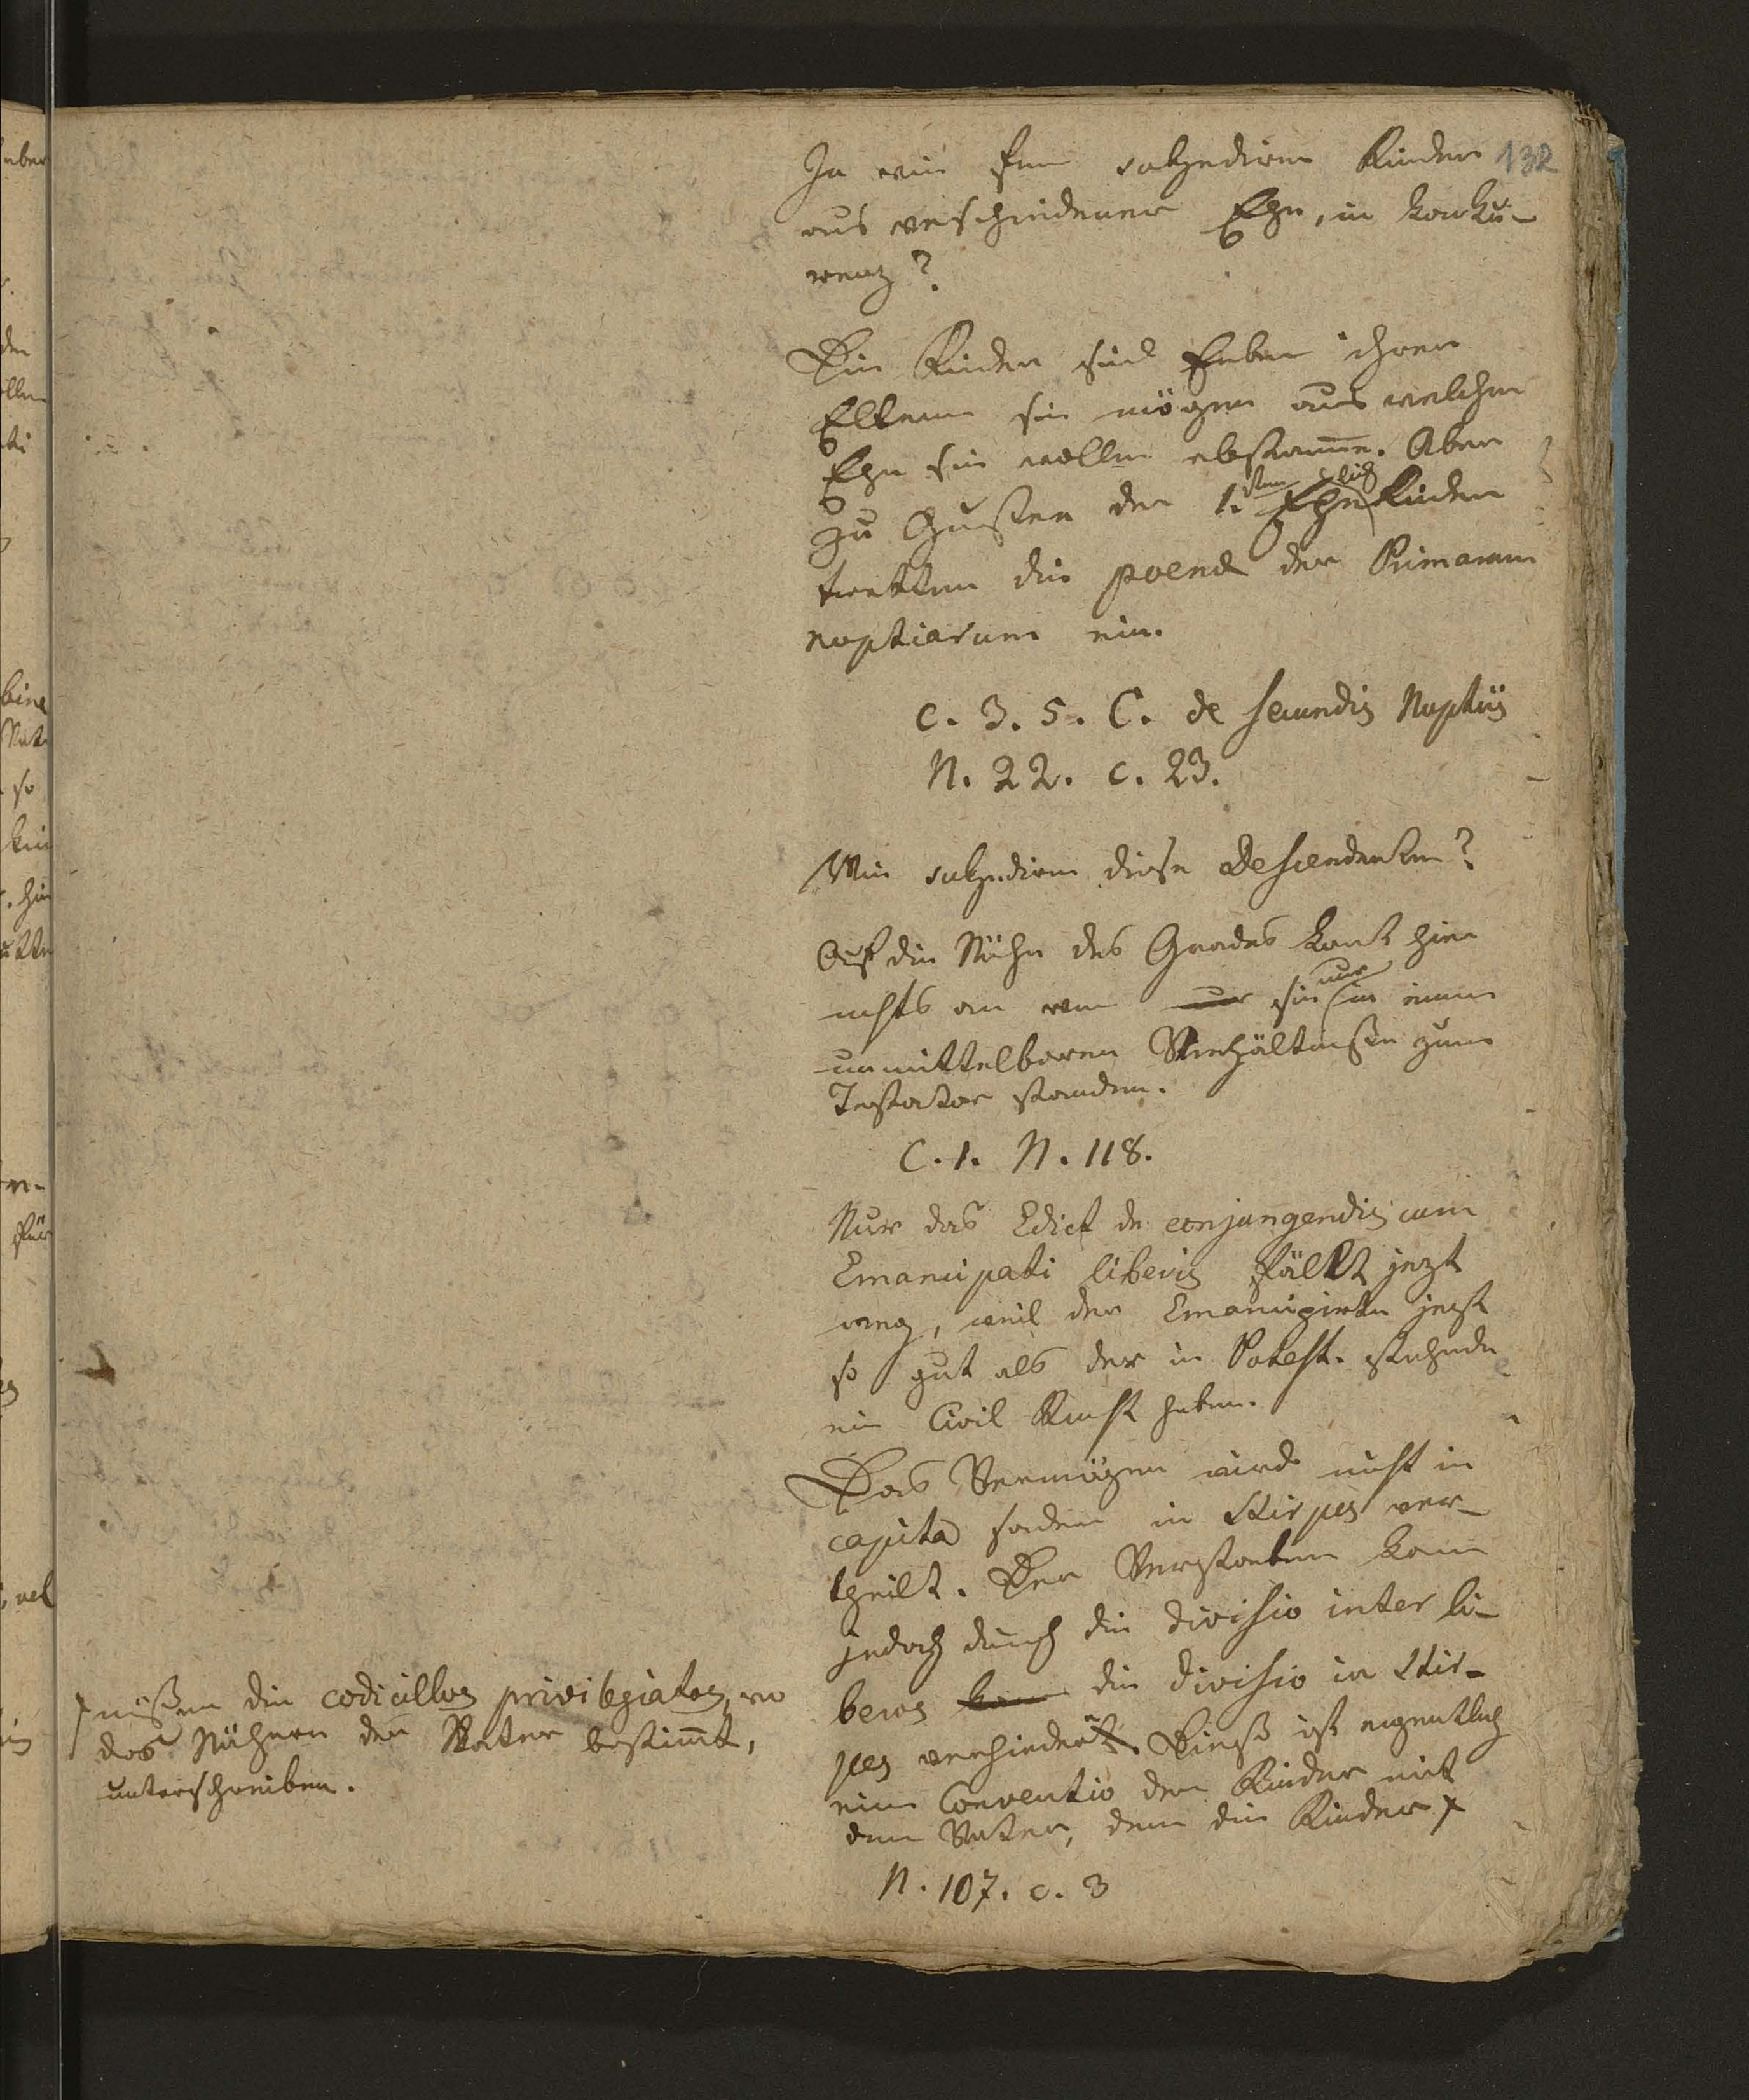 132
In wie fern sukzediren Kinder
aus verschiedener Ehe, in Konku-
renz?
Die Kinder sind Erben ihrer
Eltern sie mögen aus welcher
Ehe sie wollen abstamme. Aber
zu Gunsten der 1.sten Ehelich Kinder
tretten die poenae der Primarum
nuptiarum ein.
c. 3. 5. C. de secundis Nuptiis
N. 22. c. 23.
Wie sukzediren diese Descendenten?
Auf die Nähe des Grades komt hier
nichts an wen nur sie nur in einem
unmittelbaren Verhältnisse zum
Testator standen.
C. 1. N. 118.
Nur das Edict de conjungendis cum
Emancipati liberis fällt jezt
weg, weil der Emancipirte jezt
so gut als der in Potest. stehende
ein Civil Recht haben.
Das Vermögen wird nicht in
capita sondern in Stirpes ver-
theilt. Der Verstorbene kann
jedoch durch die divisio inter li-
beros kan die divisio in Stir-
pes verhindert. Dieß ist eigentlich
eine Conventio der Kinder mit
dem Vater, denn die Kinder +
N. 107. c. 3
+ müßen die codicillos privilegiatos, wo
das Nähere der Vater bestimt,
unterschreiben.